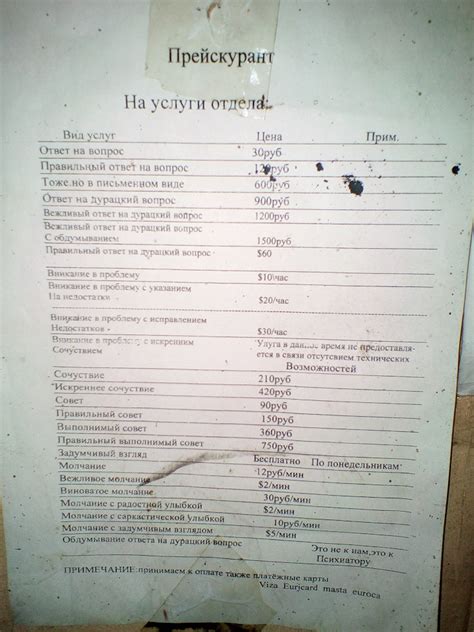 Прейскурант
На услуги отдела:
Вид услуг Цена Прим.
Ответ на вопрос 30руб
Правильный ответ на вопрос 120руб
Тоже.но в письменном виде 600руб
Ответ на дурацкий вопрос 900руб
Вежливый ответ на дурацкий вопрос 1200руб
Вежливый ответ на дурацкий вопрос
С обдумыванием 1500руб
Правильный ответ на дурацкий вопрос $60
Вникание в проблему $10\час
Вникание в проблему с указанием
На недостатки $20/час
Вникание в проблему с исправлением
Недостатков $30/час
Вникание в проблему с искренним Услуга в данное время не предоставля-
Сочуствием ется в связи отсутсвием технических
Возможностей
Сочуствие 210руб
Искреннее сочуствие 420руб
Совет 90руб
Правильный совет 150руб
Выполнимый совет 360руб
Правильный выполнимый совет 750руб
Задумчивый взгляд Бесплатно По понедельникам
Молчание 12руб/мин
Вежливое молчание $2/мин
Виноватое молчание 30руб/мин
Молчание с радостной улыбкой $2/мин
Молчание с саркастической улыбкой 10руб/мин
Молчание с задумчивым взглядом $5/мин
Обдумывание ответа на дурацкий вопрос Это не к нам,это к
Психиатору
ПРИМЕЧАНИЕ:принимаем к оплате также платёжные карты
Viza Eurjcard masta euroca